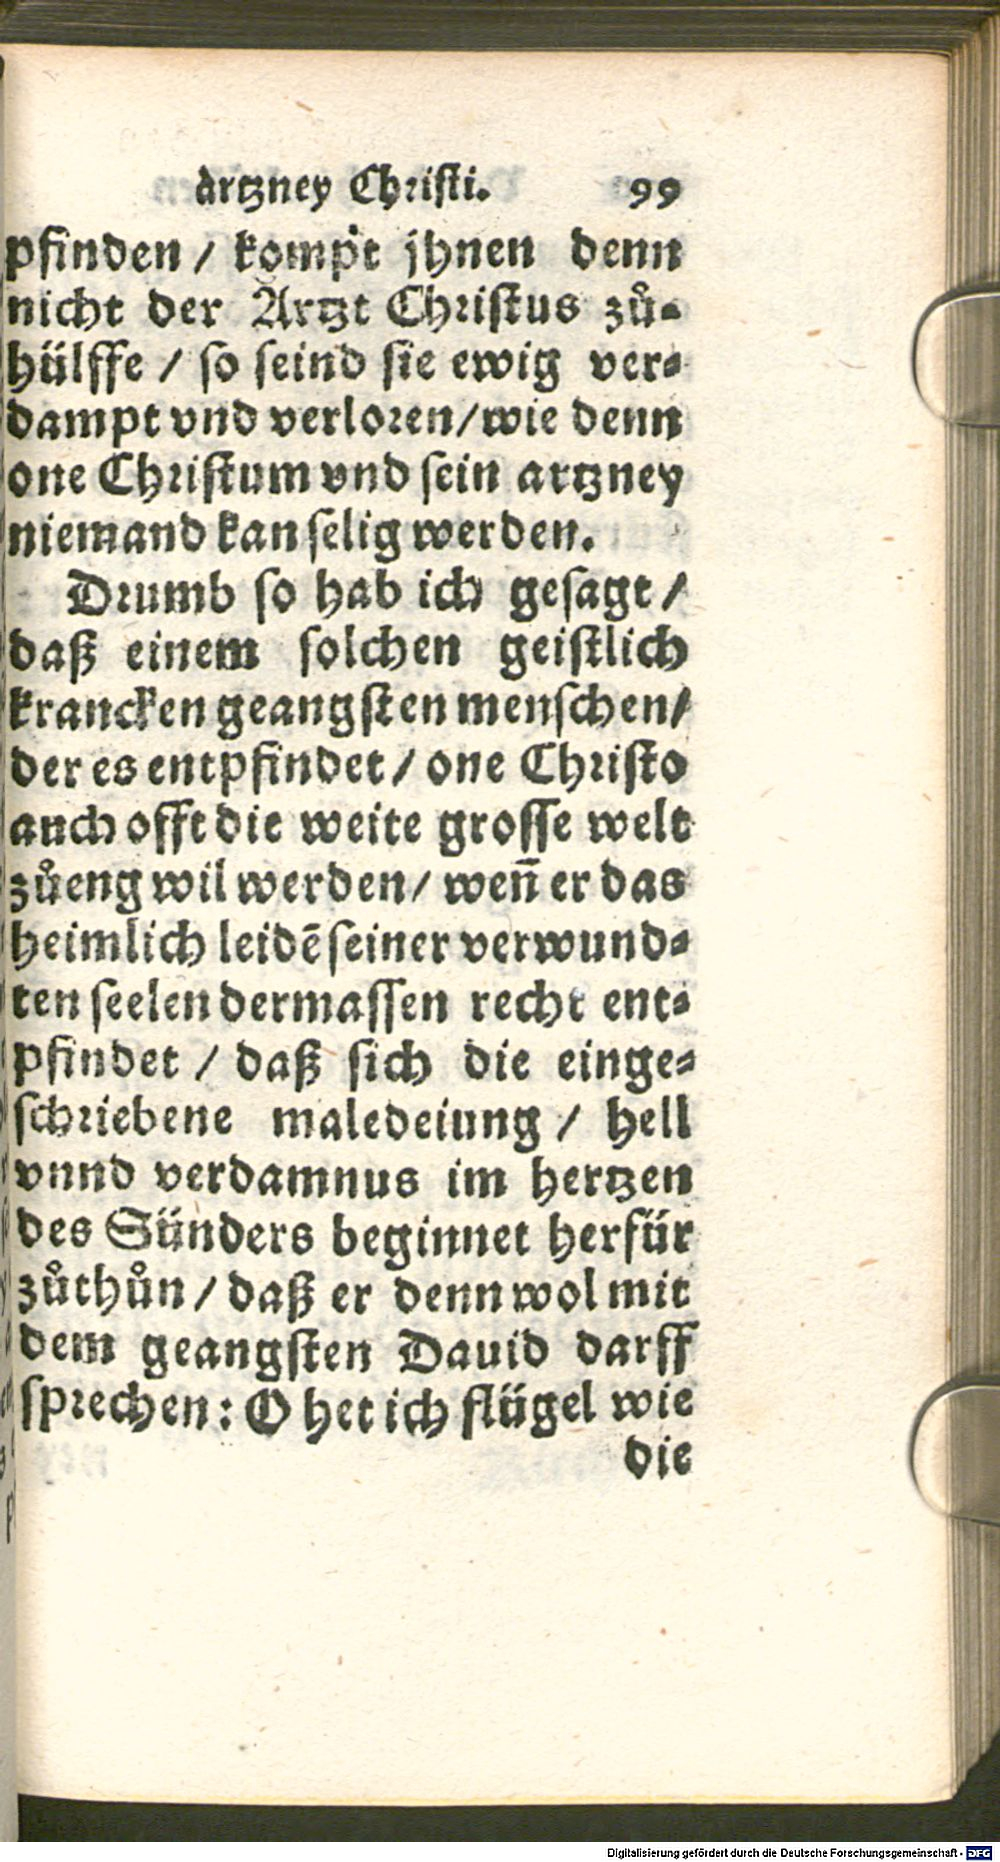 artzney Christi. 99
pfinden / kompt jhnen denn
nicht der Artzt Christus zů-
hülffe / so seind sie ewig ver-
dampt vnd verloren / wie denn
one Christum vnd sein artzney
niemand kan selig werden.
Drumb so hab ich gesagt /
daß einem solchen geistlich
krancken geangsten menschen /
der es entpfindet / one Christo
auch offt die weite grosse welt
zů eng wil werden / weñ er das
heimlich leidẽ seiner verwund-
ten seelen dermassen recht ent-
pfindet / daß sich die einge-
schriebene maledeiung / hell
vnnd verdamnus im hertzen
des Sünders beginnet herfür
zůthůn / daß er denn wol mit
dem geangsten Dauid darff
sprechen : O het ich flügel wie
die
Digitalisierung gefördert durch die Deutsche Forschungsgemeinschaft - DFG